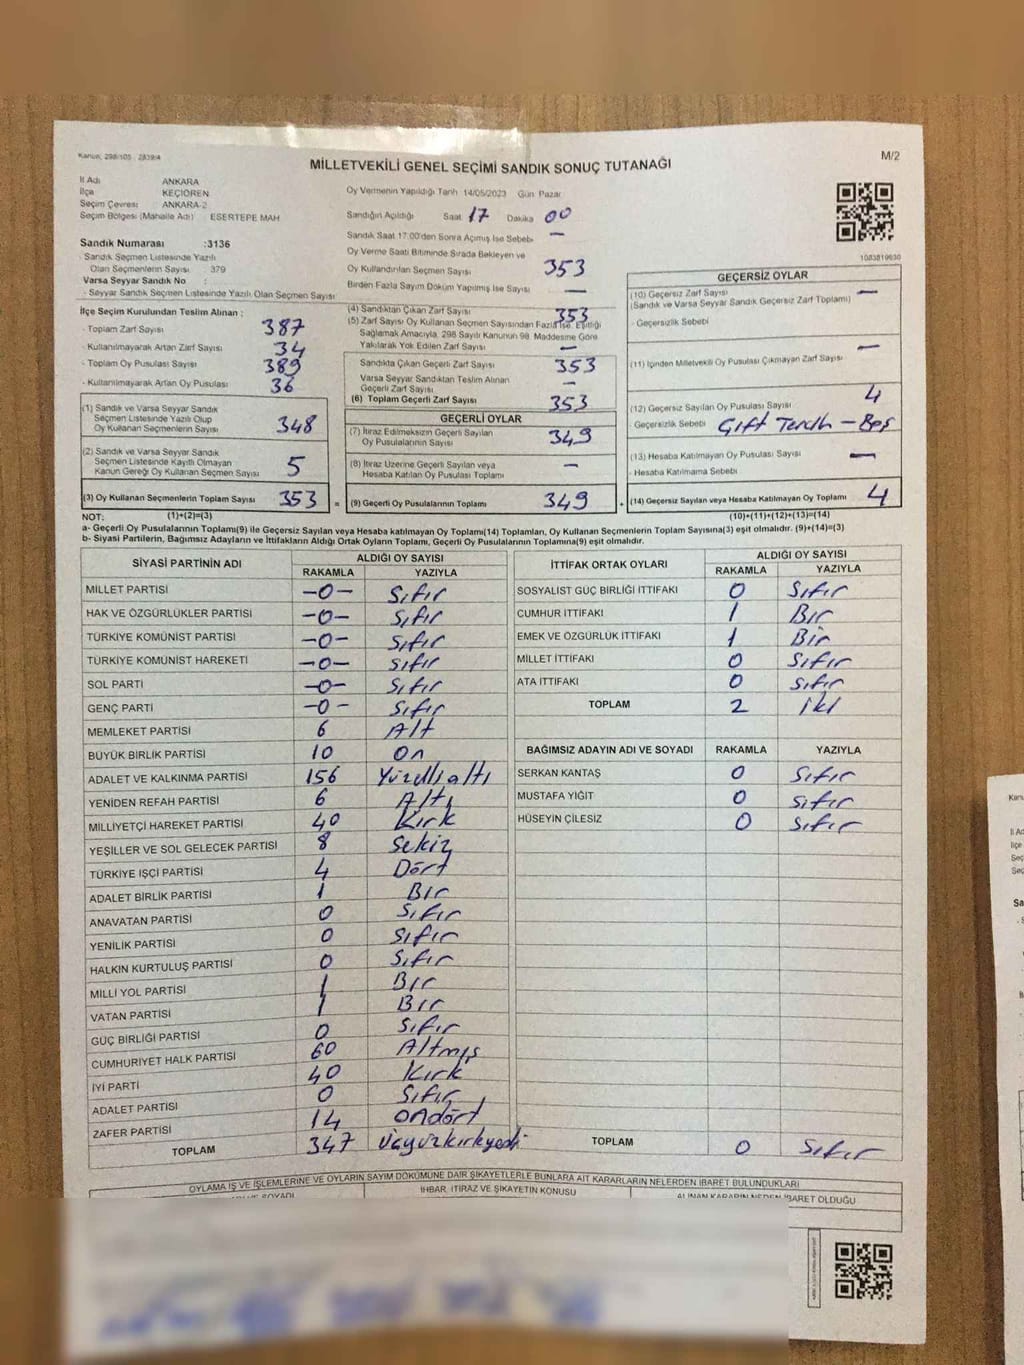 Kanun, 298/105 - 2839/4
M/2
MİLLETVEKİLİ GENEL SEÇİMİ SANDIK SONUÇ TUTANAĞI
İl Adı ANKARA
İlçe KEÇİÖREN
Seçim Çevresi ANKARA-2
Seçim Bölgesi (Mahalle Adı) : ESERTEPE MAH
Sandık Numarası :3136
- Sandık Seçmen Listesinde Yazılı
Olan Seçmenlerin Sayısı : 379
Varsa Seyyar Sandık No :
- Seyyar Sandık Seçmen Listesinde Yazılı Olan Seçmen Sayısı
İlçe Seçim Kurulundan Teslim Alınan :
- Toplam Zarf Sayısı 387
- Kullanılmayarak Artan Zarf Sayısı 34
- Toplam Oy Pusulası Sayısı 389
- Kullanılmayarak Artan Oy Pusulası 36
(1) Sandık ve Varsa Seyyar Sandık
Seçmen Listesinde Yazılı Olup
Oy Kullanan Seçmenlerin Sayısı 348
(2) Sandık ve Varsa Seyyar Sandık
Seçmen Listesinde Kayıtlı Olmayan
Kanun Gereği Oy Kullanan Seçmen Sayısı 5
(3) Oy Kullanan Seçmenlerin Toplam Sayısı 353
Oy Vermenin Yapıldığı Tarih 14/05/2023 Gün Pazar
Sandığın Açıldığı Saat 17 Dakika 00
Sandık Saat 17:00'den Sonra Açılmış İse Sebebi —
Oy Verme Saati Bitiminde Sırada Bekleyen ve
Oy Kullandırılan Seçmen Sayısı 353
Birden Fazla Sayım Döküm Yapılmış İse Sayısı —
(4) Sandıktan Çıkan Zarf Sayısı 353
(5) Zarf Sayısı Oy Kullanan Seçmen Sayısından Fazla İse, Eşitliği
Sağlamak Amacıyla, 298 Sayılı Kanunun 98. Maddesine Göre
Yakılarak Yok Edilen Zarf Sayısı —
Sandıkta Çıkan Geçerli Zarf Sayısı 353
Varsa Seyyar Sandıktan Teslim Alınan
Geçerli Zarf Sayısı —
(6) Toplam Geçerli Zarf Sayısı 353
GEÇERLİ OYLAR
(7) İtiraz Edilmeksizin Geçerli Sayılan
Oy Pusulalarının Sayısı 349
(8) İtiraz Üzerine Geçerli Sayılan veya
Hesaba Katılan Oy Pusulası Toplamı —
= (9) Geçerli Oy Pusulalarının Toplamı 349
1083819630
GEÇERSİZ OYLAR
(10) Geçersiz Zarf Sayısı —
(Sandık ve Varsa Seyyar Sandık Geçersiz Zarf Toplamı)
- Geçersizlik Sebebi
(11) İçinden Milletvekili Oy Pusulası Çıkmayan Zarf Sayısı —
(12) Geçersiz Sayılan Oy Pusulası Sayısı 4
- Geçersizlik Sebebi Çift Tercih — Boş
(13) Hesaba Katılmayan Oy Pusulası Sayısı —
- Hesaba Katılmama Sebebi
+ (14) Geçersiz Sayılan veya Hesaba Katılmayan Oy Toplamı 4
NOT: (1)+(2)=(3) (10)+(11)+(12)+(13)=(14)
a- Geçerli Oy Pusulalarının Toplamı(9) ile Geçersiz Sayılan veya Hesaba katılmayan Oy Toplamı(14) Toplamları, Oy Kullanan Seçmenlerin Toplam Sayısına(3) eşit olmalıdır. (9)+(14)=(3)
b- Siyasi Partilerin, Bağımsız Adayların ve İttifakların Aldığı Ortak Oyların Toplamı, Geçerli Oy Pusulalarının Toplamına(9) eşit olmalıdır.
SİYASİ PARTİNİN ADI ALDIĞI OY SAYISI
RAKAMLA YAZIYLA
MİLLET PARTİSİ —0— Sıfır
HAK VE ÖZGÜRLÜKLER PARTİSİ —0— Sıfır
TÜRKİYE KOMÜNİST PARTİSİ —0— Sıfır
TÜRKİYE KOMÜNİST HAREKETİ —0— Sıfır
SOL PARTİ —0— Sıfır
GENÇ PARTİ —0— Sıfır
MEMLEKET PARTİSİ 6 Altı
BÜYÜK BİRLİK PARTİSİ 10 On
ADALET VE KALKINMA PARTİSİ 156 Yüzelli altı
YENİDEN REFAH PARTİSİ 6 Altı
MİLLİYETÇİ HAREKET PARTİSİ 40 Kırk
YEŞİLLER VE SOL GELECEK PARTİSİ 8 Sekiz
TÜRKİYE İŞÇİ PARTİSİ 4 Dört
ADALET BİRLİK PARTİSİ 1 Bir
ANAVATAN PARTİSİ 0 Sıfır
YENİLİK PARTİSİ 0 Sıfır
HALKIN KURTULUŞ PARTİSİ 0 Sıfır
MİLLİ YOL PARTİSİ 1 Bir
VATAN PARTİSİ 1 Bir
GÜÇ BİRLİĞİ PARTİSİ 0 Sıfır
CUMHURİYET HALK PARTİSİ 60 Altmış
İYİ PARTİ 40 Kırk
ADALET PARTİSİ 0 Sıfır
ZAFER PARTİSİ 14 Ondört
TOPLAM 347 Üçyüzkırkyedi
İTTİFAK ORTAK OYLARI ALDIĞI OY SAYISI
RAKAMLA YAZIYLA
SOSYALİST GÜÇ BİRLİĞİ İTTİFAKI 0 Sıfır
CUMHUR İTTİFAKI 1 Bir
EMEK VE ÖZGÜRLÜK İTTİFAKI 1 Bir
MİLLET İTTİFAKI 0 Sıfır
ATA İTTİFAKI 0 Sıfır
TOPLAM 2 İki
BAĞIMSIZ ADAYIN ADI VE SOYADI RAKAMLA YAZIYLA
SERKAN KANTAŞ 0 Sıfır
MUSTAFA YİĞİT 0 Sıfır
HÜSEYİN ÇİLESİZ 0 Sıfır
TOPLAM 0 Sıfır
OYLAMA İŞ VE İŞLEMLERİNE VE OYLARIN SAYIM DÖKÜMÜNE DAİR ŞİKAYETLERLE BUNLARA AİT KARARLARIN NELERDEN İBARET BULUNDUKLARI
SOYADI İHBAR, İTİRAZ VE ŞİKAYETİN KONUSU ALINAN KARARIN NEDEN İBARET OLDUĞU